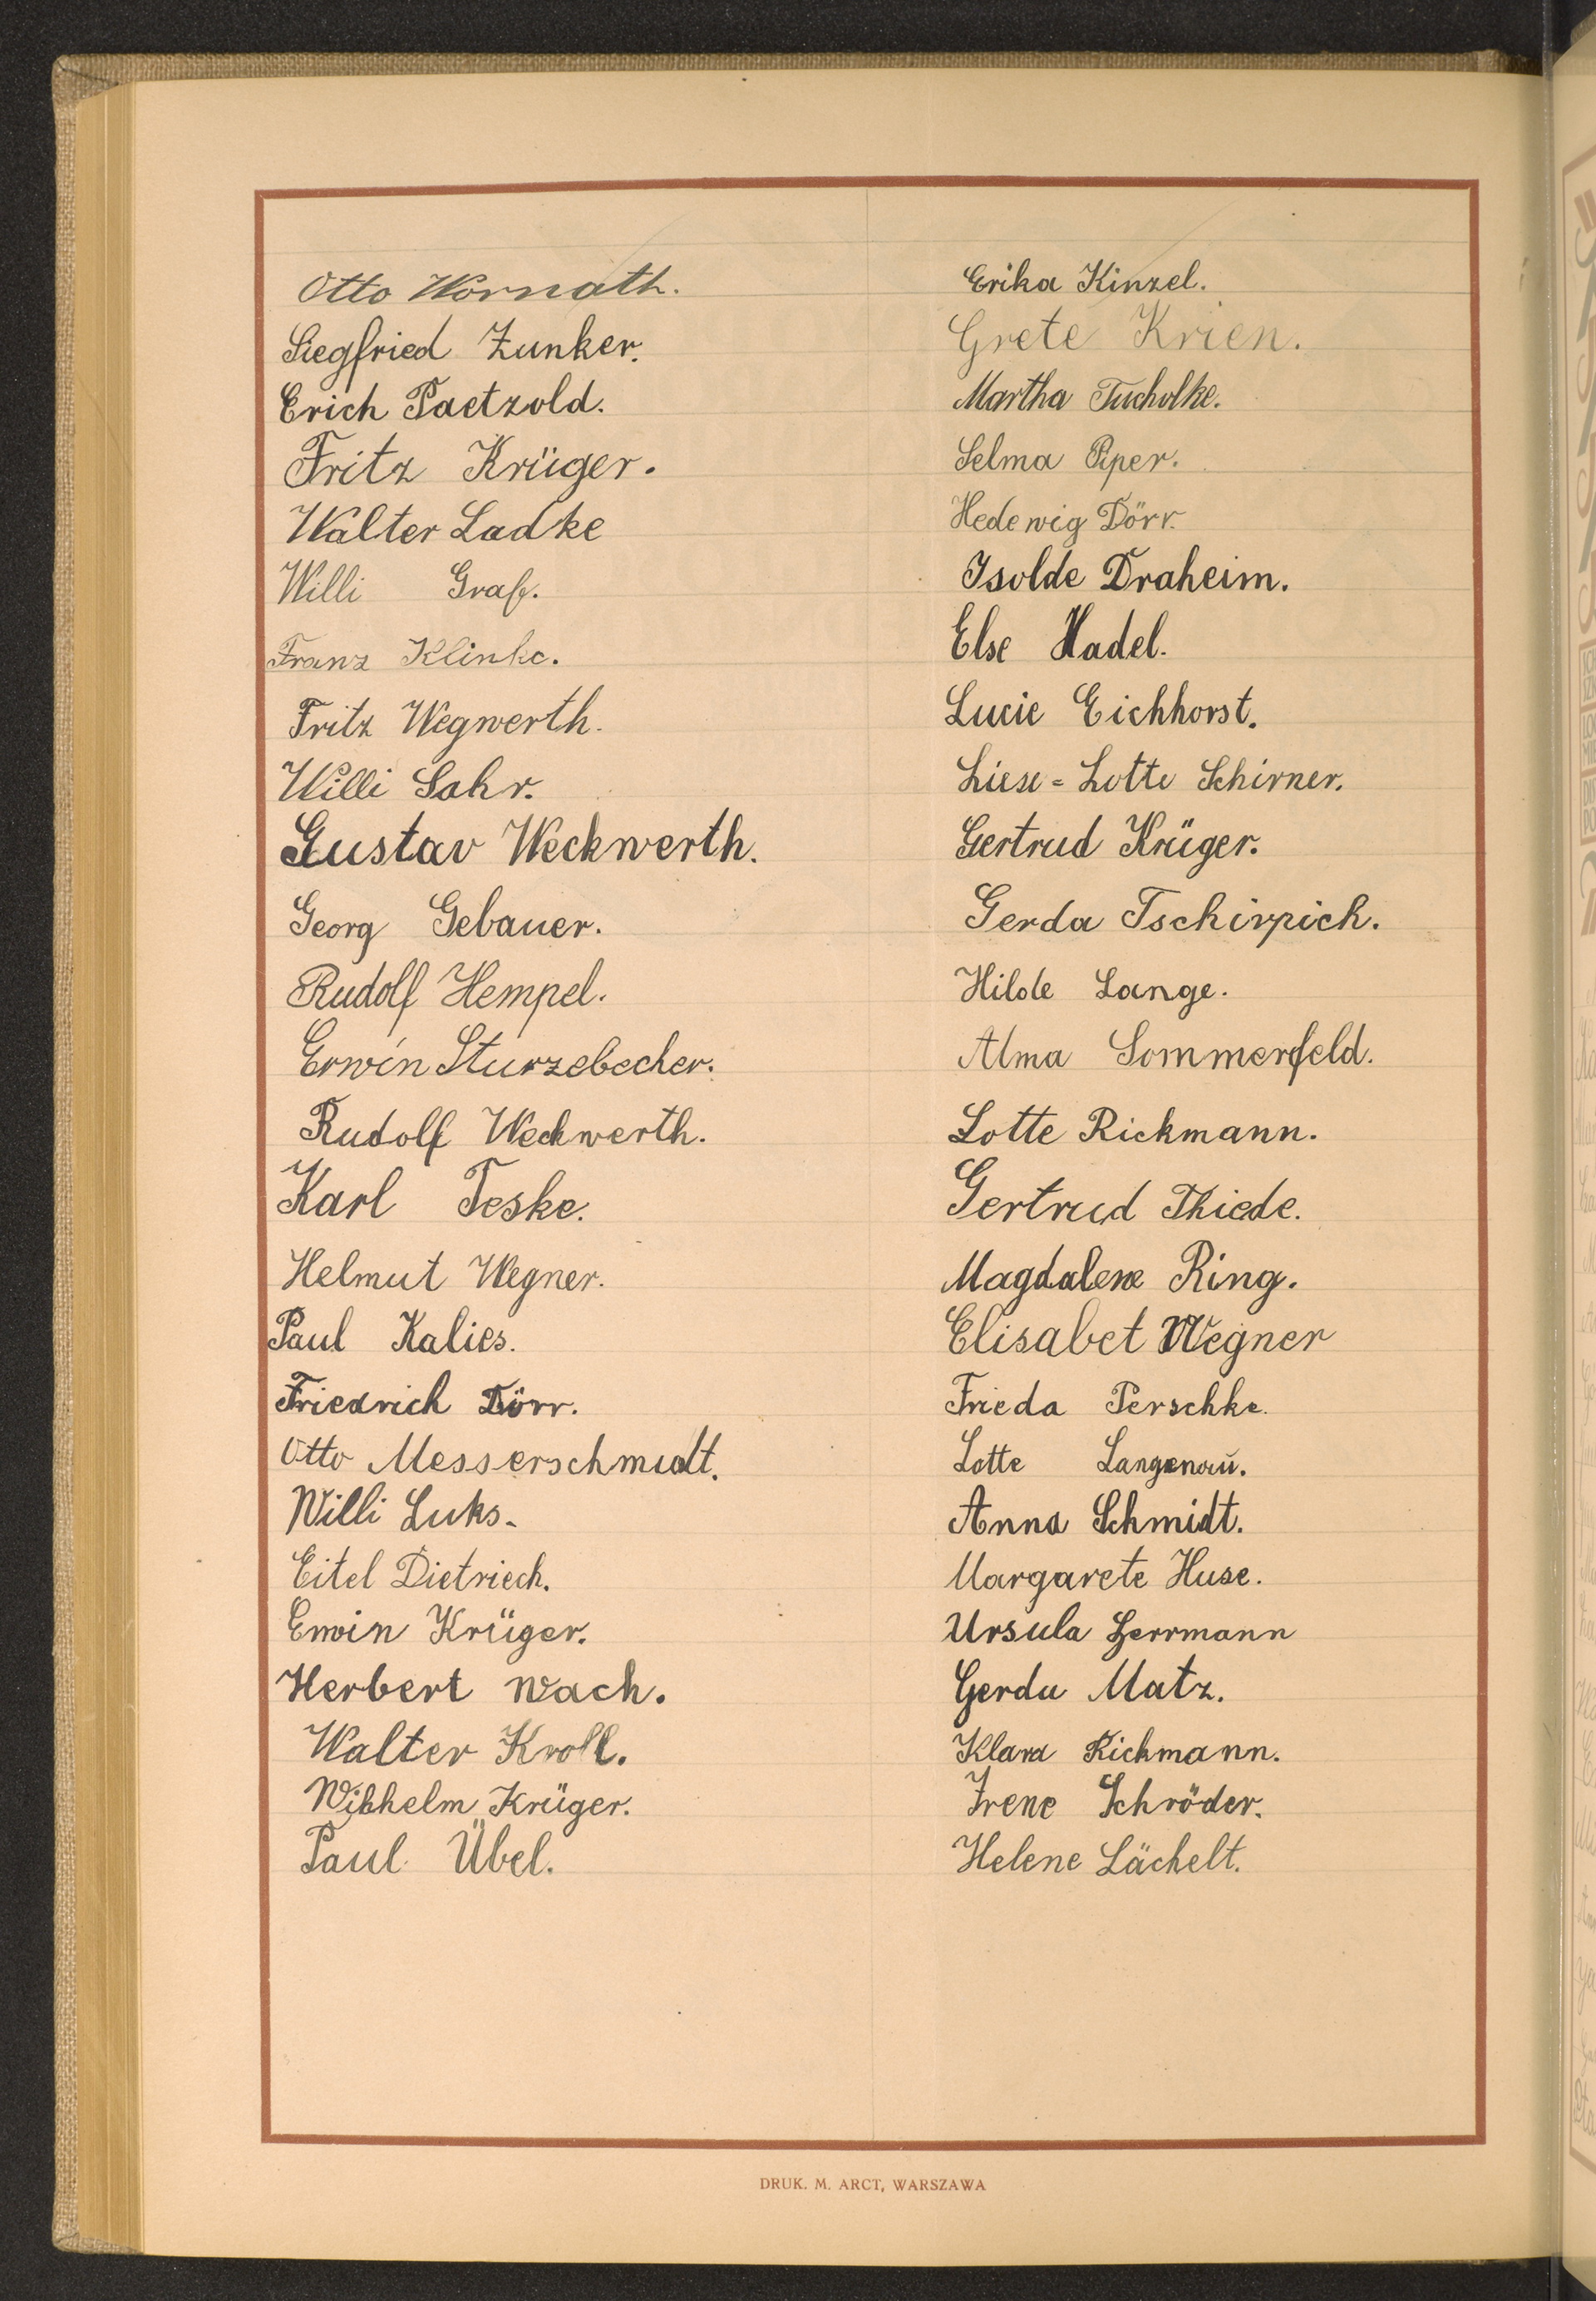 Otto Wornath.
Siegfried Zunker.
Erich Paetzold.
Fritz Krüger.
Walter Ladke
Willi Graf.
Franz Klinke.
Fritz Wegwerth.
Willi Sahr.
Gustav Weckwerth.
Georg Gebauer.
Rudolf Hempel.
Erwin Sturzebecher.
Rudolf Weckwerth.
Karl Teske.
Helmut Wegner.
Paul Kalies.
Friedrich Dörr.
Otto Messerschmidt.
Willi Luks.
Eitel Dietriech.
Erwin Krüger.
Herbert Wach.
Walter Kroll.
Wilhelm Krüger.
Paul Übel.
Erika Kinzel.
Grete Krien.
Martha Tucholke.
Selma Piper.
Hedewig Dörr.
Isolde Draheim.
Else Hadel.
Lucie Eichhorst.
Liese=Lotte Schirner.
Gertrud Krüger.
Gerda Tschirpich.
Hilde Lange.
Alma Sommerfeld.
Lotte Rickmann.
Gertrud Thiede.
Magdalene Ring.
Elisabet Wegner
Frieda Perschke.
Lotte Langenau.
Anna Schmidt.
Margarete Huse.
Ursula Herrmann
Gerda Matz.
Klara Rickmann.
Irene Schröder.
Helene Lächelt.
DRUK. M. ARCT, WARSZAWA